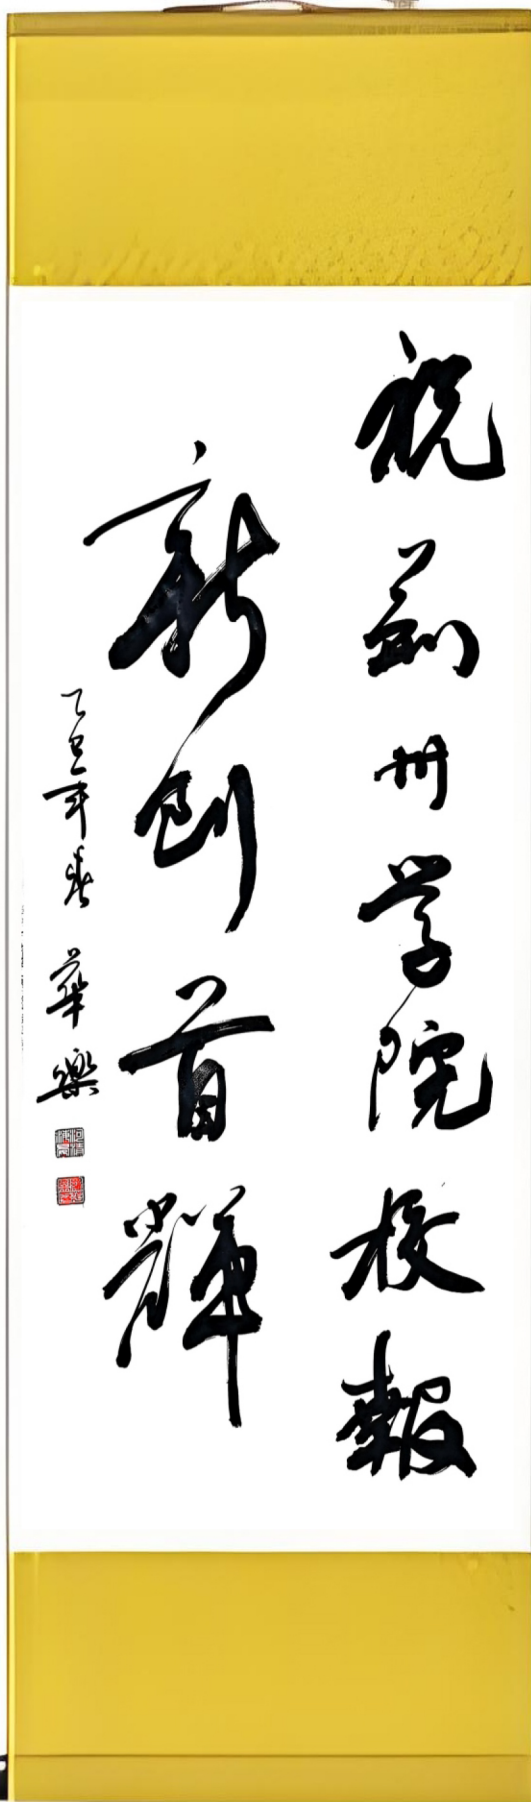 祝荊州学院校報
新創首輝
乙巳年春 華樂